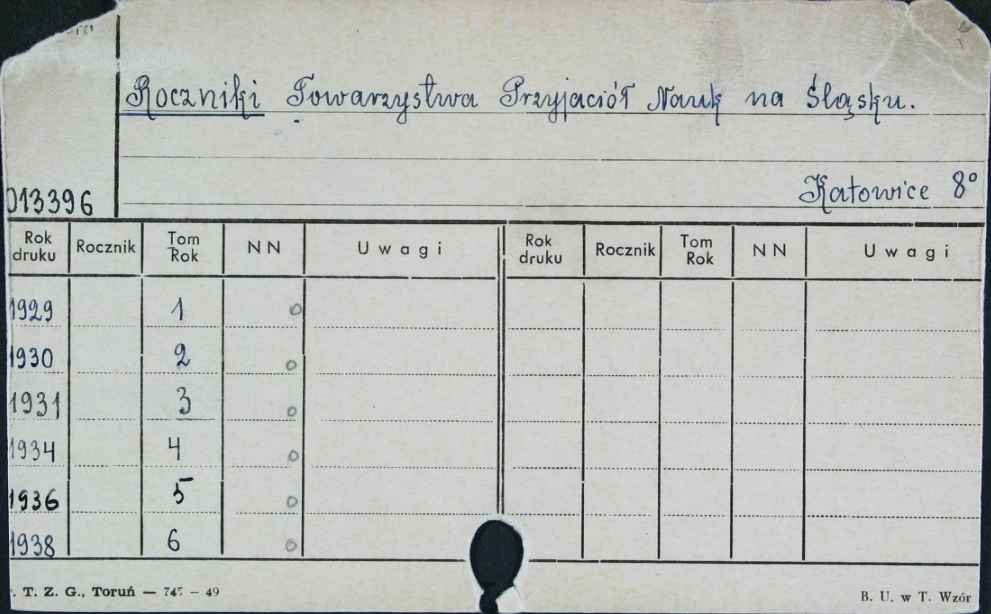 Roczniki Towarzystwa Przyjaciół Nauk na Śląsku.
Katowice 8°
013396
Rok druku Rocznik Tom Rok NN Uwagi Rok druku Rocznik Tom Rok NN Uwagi
1929 1 o
1930 2 o
1931 3 o
1934 4 o
1936 5 o
1938 6 o
. T. Z. G., Toruń — 745 — 49 B. U. w T. Wzór